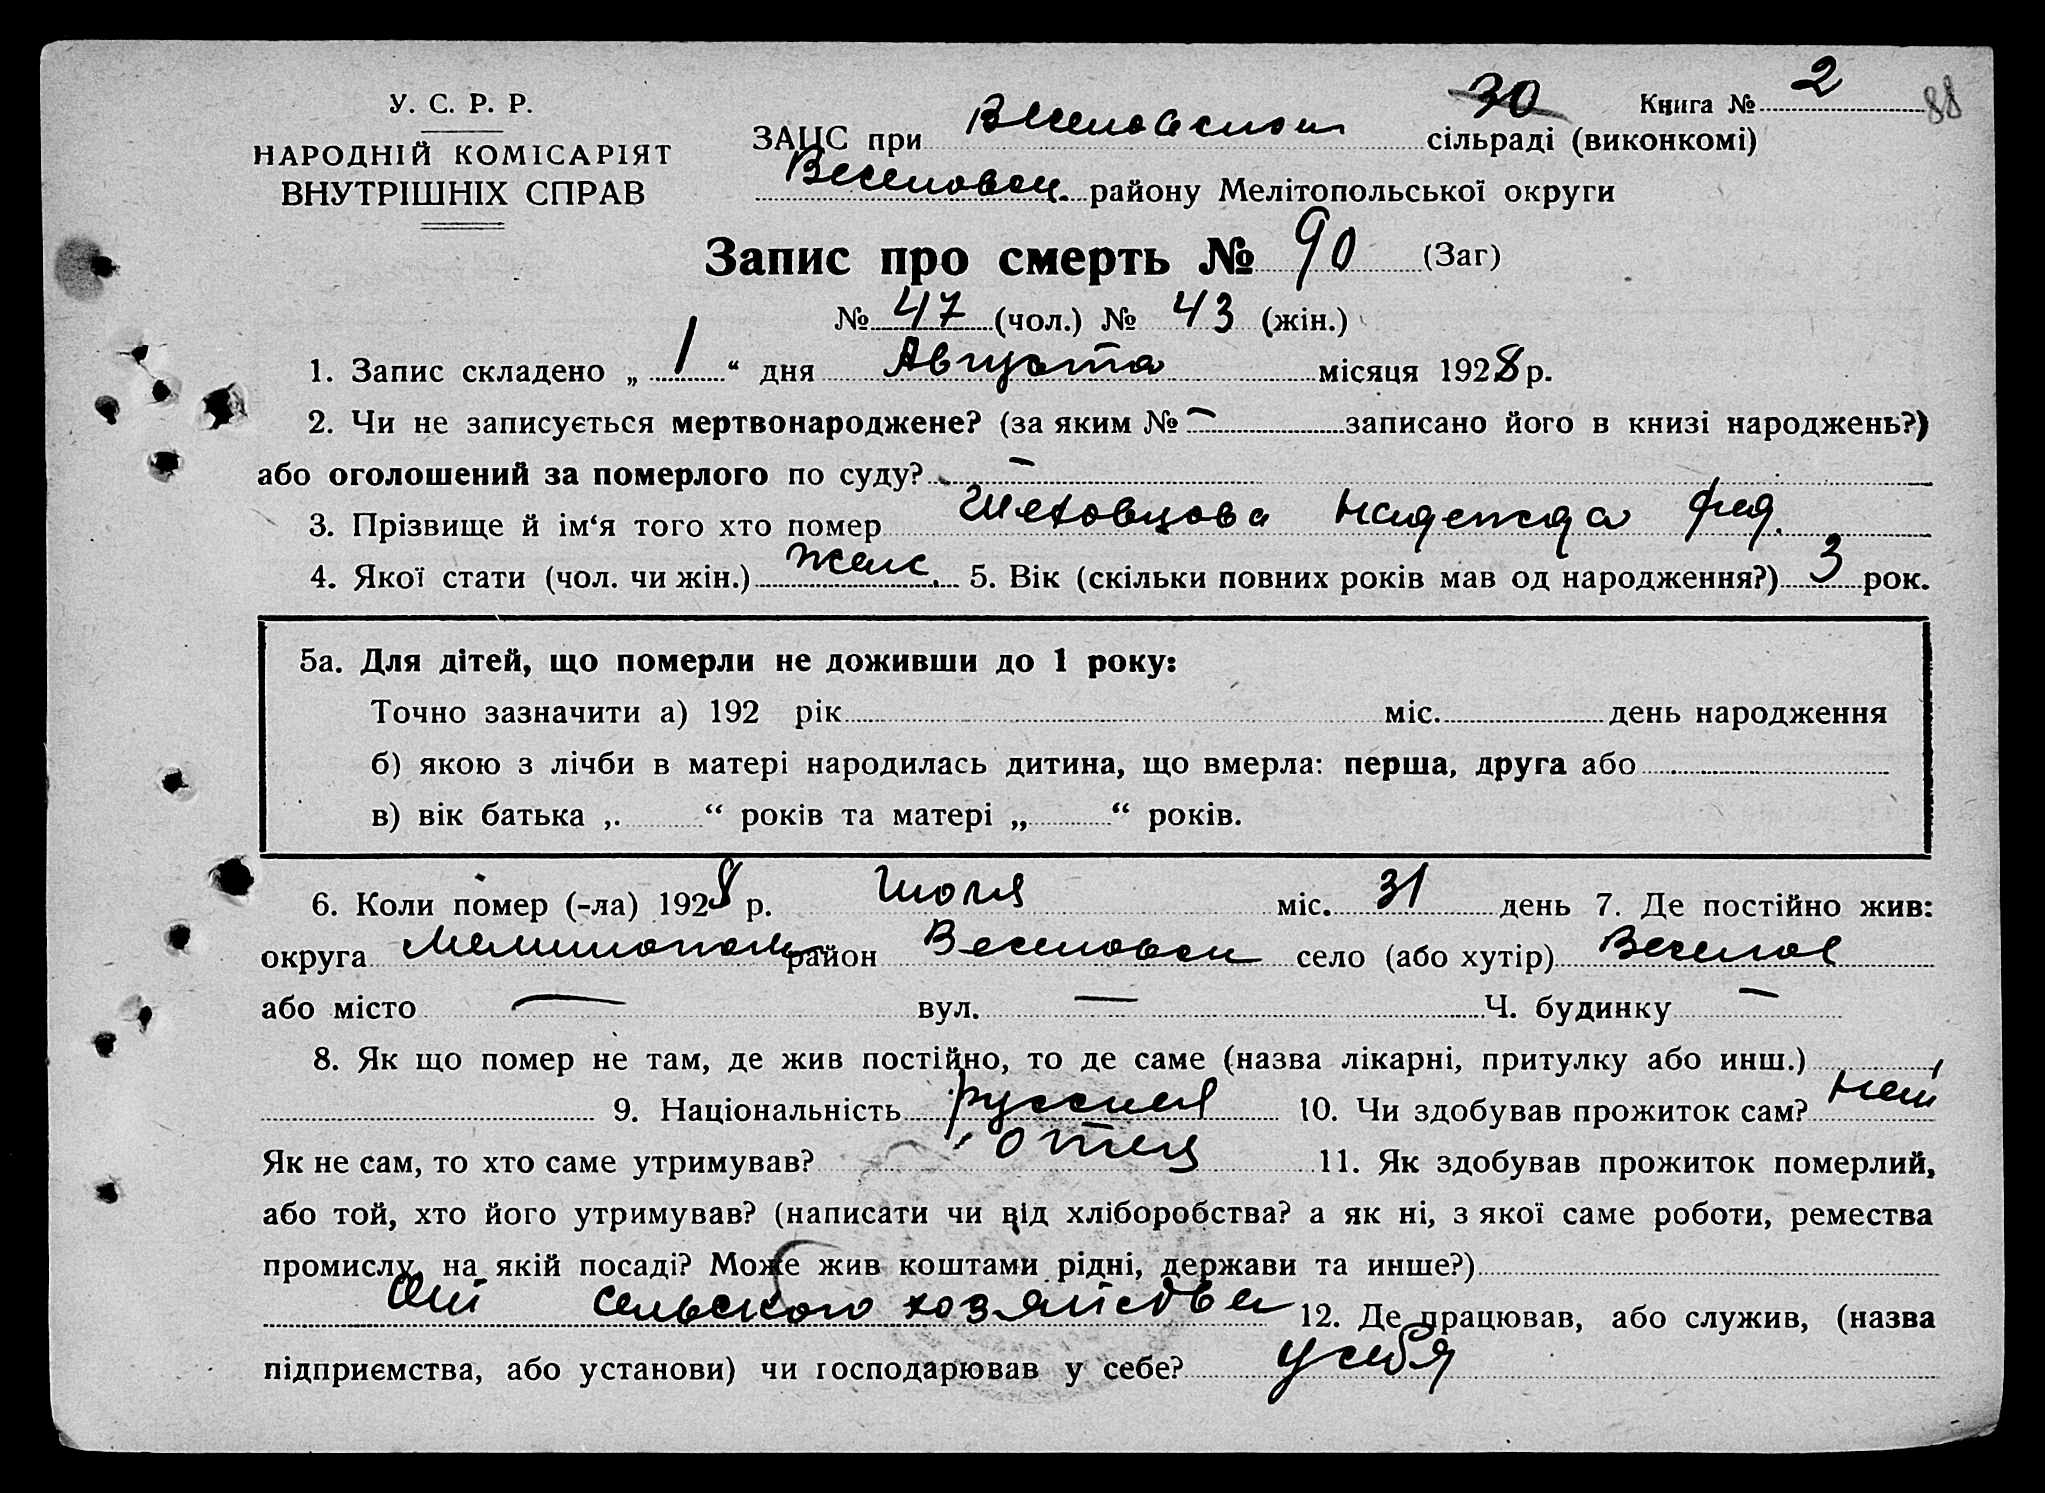 30 Книга № 2 88
У. С. Р. Р.
НАРОДНІЙ КОМІСАРІЯТ
ВНУТРІШНІХ СПРАВ
ЗАЦС при Веселовском сільраді (виконкомі)
Веселовск. району Мелітопольської округи
Запис про смерть № 90 (Заг)
№ 47 (чол.) № 43 (жін.)
1. Запис складено „ 1 “ дня Августа місяця 1928 р.
2. Чи не записується мертвонароджене? (за яким № — записано його в книзі народжень?)
або оголошений за померлого по суду? —
3. Прізвище й ім‘я того хто помер Шеховцова Надежда Фед.
4. Якої стати (чол. чи жін.) женс. 5. Вік (скільки повних років мав од народження?) 3 рок.
5а. Для дітей, що померли не доживши до 1 року:
Точно зазначити а) 192 рік міс. день народження
б) якою з лічби в матері народилась дитина, що вмерла: перша, друга або
в) вік батька „ “ років та матері „ “ років.
6. Коли помер (-ла) 1928 р. Июля міс. 31 день 7. Де постійно жив:
округа Мелитополь район Веселовск село (або хутір) Веселое
або місто — вул. — Ч. будинку —
8. Як що помер не там, де жив постійно, то де саме (назва лікарні, притулку або инш.)
9. Національність русская 10. Чи здобував прожиток сам? нет
Як не сам, то хто саме утримував? отец 11. Як здобував прожиток померлий,
або той, хто його утримував? (написати чи від хліборобства? а як ні, з якої саме роботи, ремества
промислу, на якій посаді? Може жив коштами рідні, держави та инше?)
От сельского хозяйства 12. Де працював, або служив, (назва
підприємства, або установи) чи господарював у себе? у себя